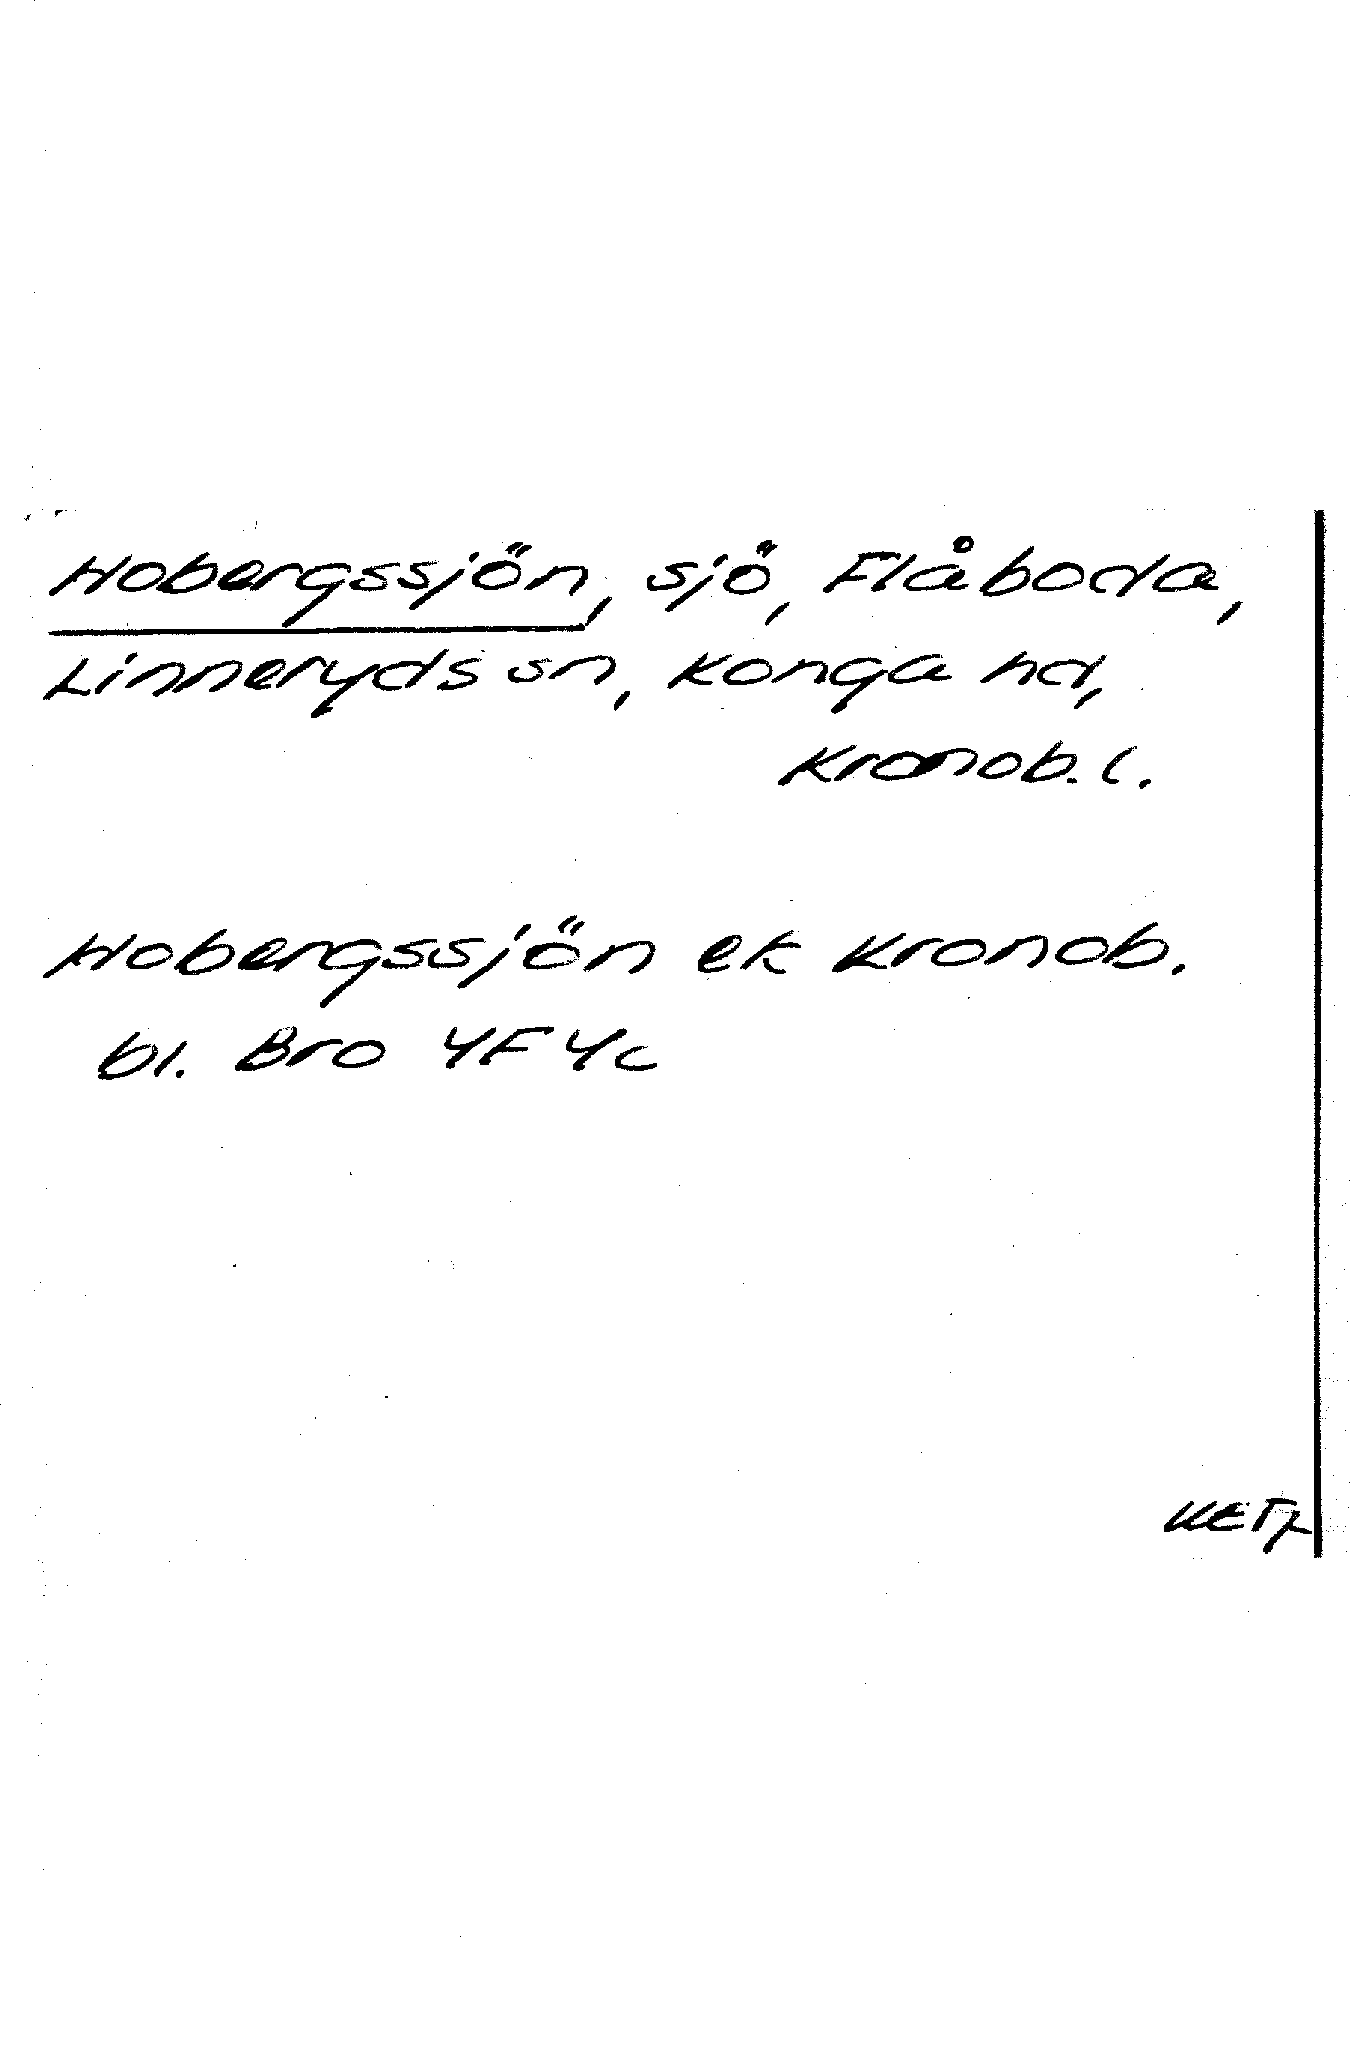 Hobergssjön, sjö, Flåboda,
Linneryds sn, Konga hd,
Kronob. l.
Hobergssjön ek Kronob.
bl. Bro 4F 4c